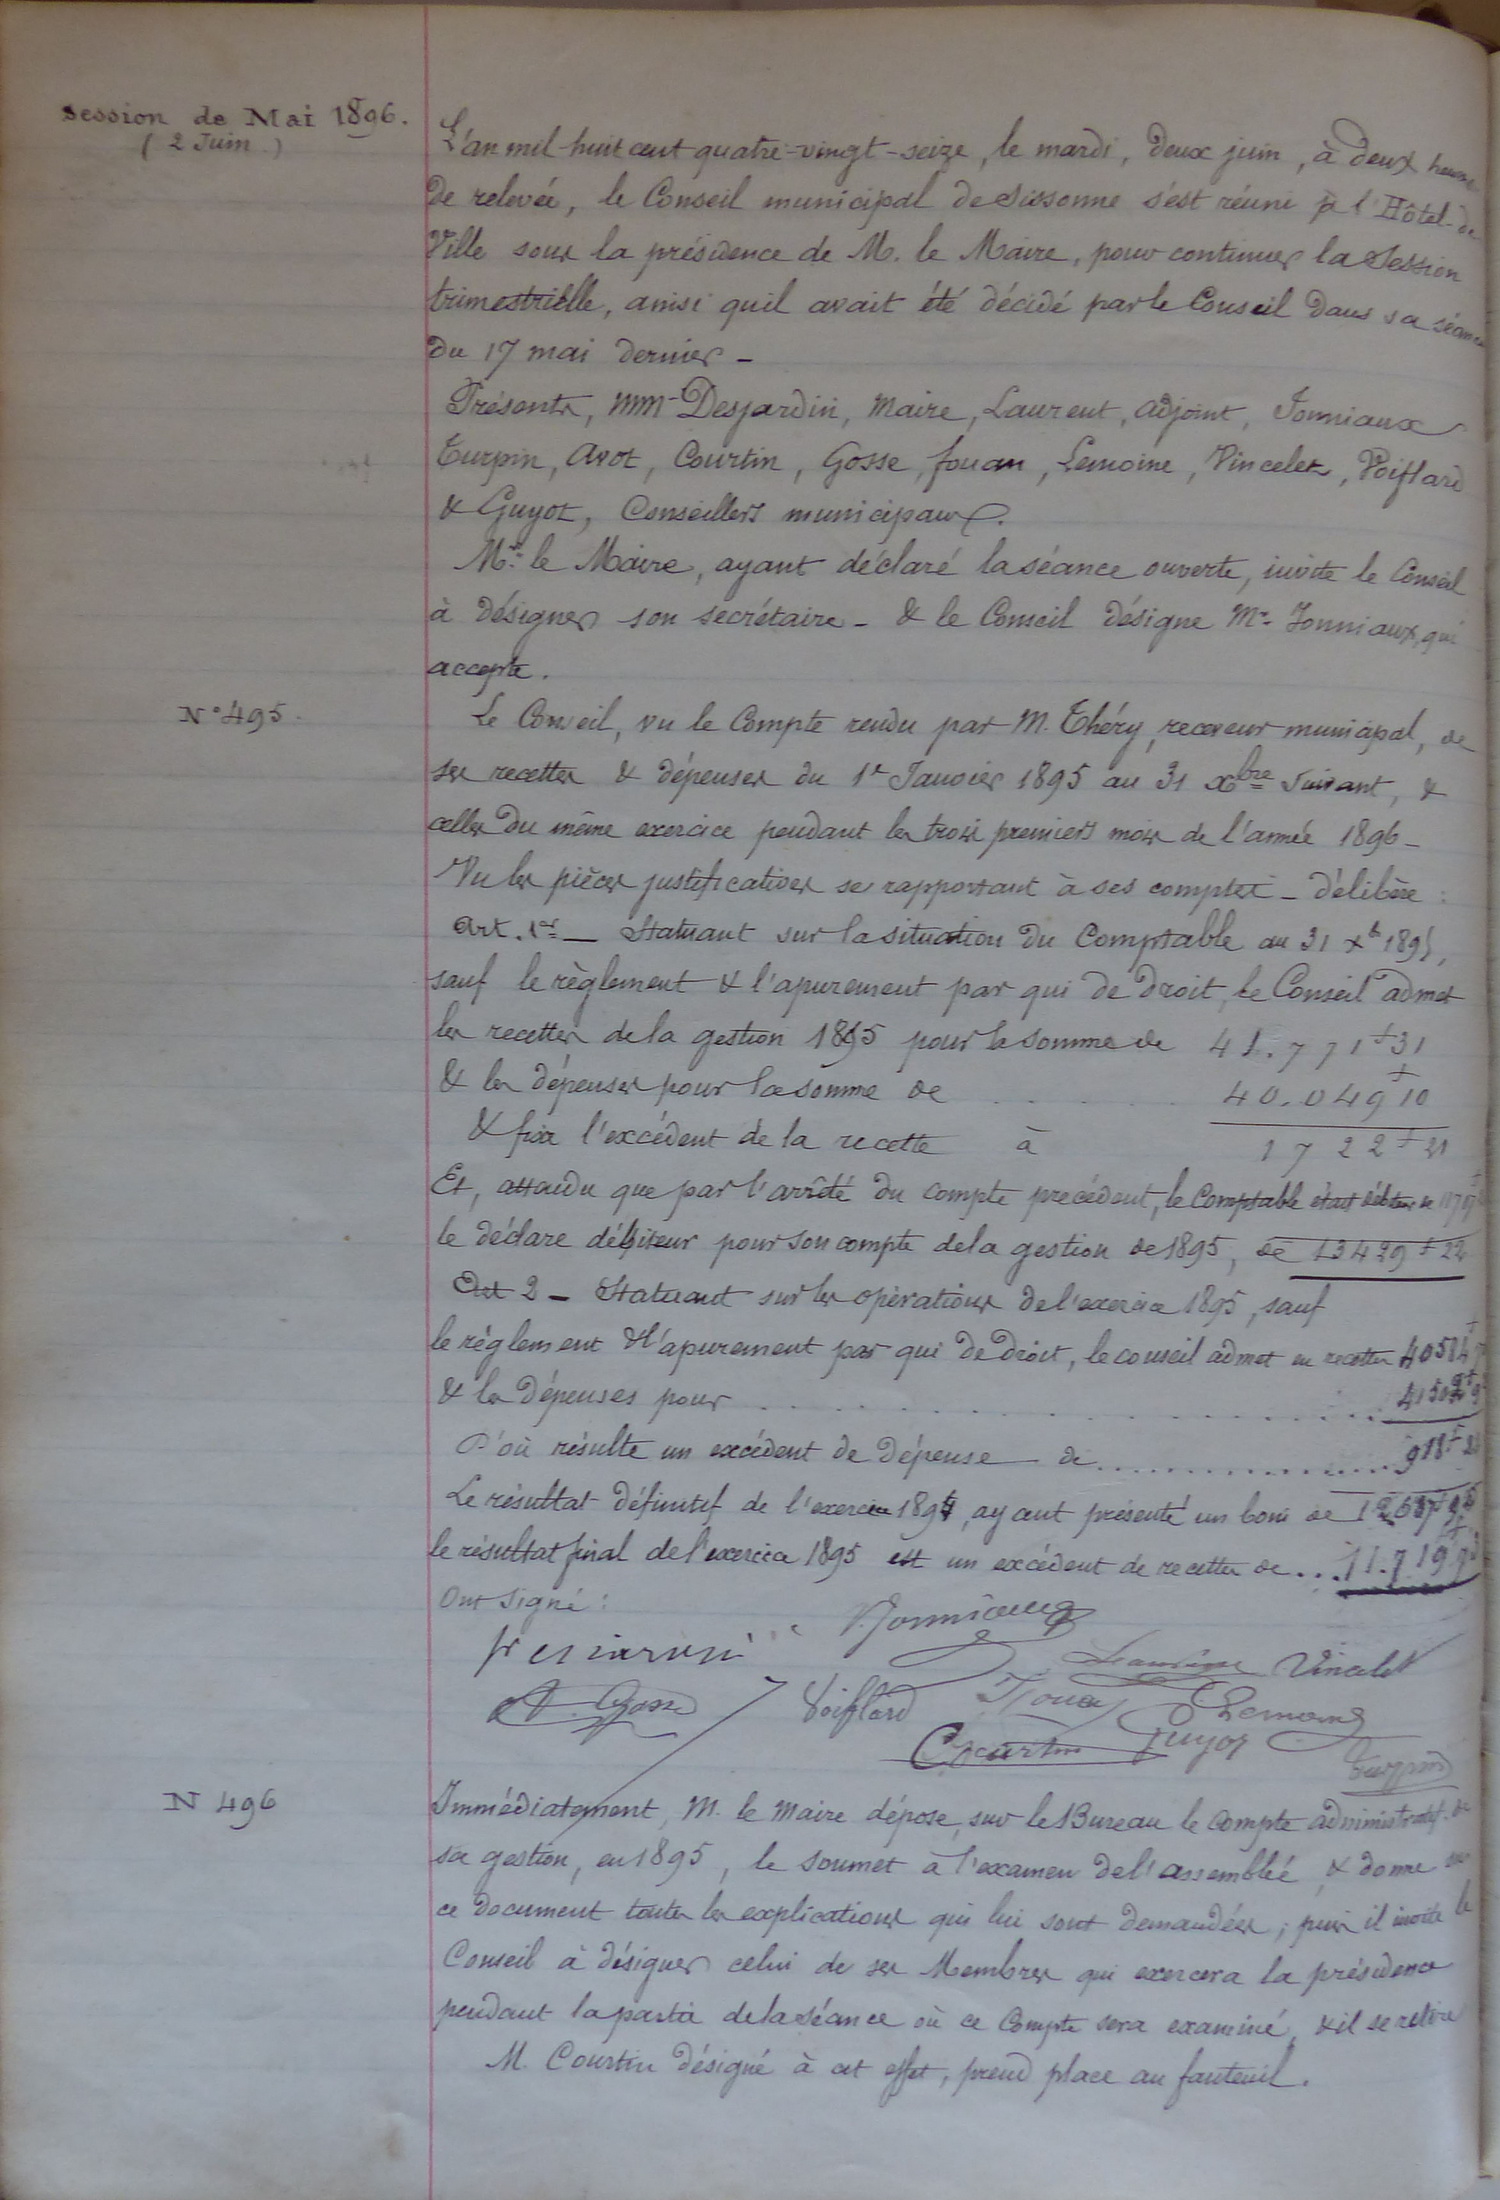 Session de Mai 1896.
( 2 Juin )
L'an mil-huit cent quatre-vingt-seize, le mardi, deux juin, à deux heures
de relevée, le Conseil municipal de Sissonne s'est réuni à l'Hôtel-de
Ville sous la présidence de M. le Maire, pour continuer la Session
trimestrielle, ainsi qu'il avait été décidé par le Conseil dans sa séance
du 17 mai dernier -
Présents, MM- Desjardin, Maire, Laurent, adjoint, Jonniaux
Turpin, Avot, Courtin, Gosse, fouan, Lemoine, Vincelet, Voiflard
& Guyot, Conseillers municipaux.
Mr. le Maire, ayant déclaré la séance ouverte, invite le Conseil
à désigner son secrétaire - & le Conseil désigne Mr- Jonniaux, qui
accepte.
N° 495.
Le Conseil, vu le Compte rendu par M. Théry, receveur municipal, de
ses recettes & dépenses du 1er Janvier 1895 au 31 xbre suivant, &
celles du même exercice pendant les trois premiers mois de l'année 1896 -
Vu les pièces justificatives se rapportant à ses comptes - délibère :
Art. 1er - Statuant sur la situation du Comptable au 31 xb 1895,
sauf le règlement & l'apurement par qui de droit, le Conseil admet
les recettes de la gestion 1895 pour la somme de 41.771f31
& les dépenses pour la somme de . . . 40.049f10
& fixe l'excédent de la recette à 1722f21
Et, attendu que par l'arrêté du compte précédent, le Comptable était débiteur de
le déclare débiteur pour son compte de la gestion de 1895, de 13429f22
Art 2 - Statuant sur les opérations de l'exercice 1895, sauf
le règlement & l'apurement par qui de droit, le conseil admet en recettes
& les dépenses pour . . . . . . . . . . .
D'où résulte un excédent de dépense - de ...............
Le résultat définitif de l'exercice 1894, ayant présenté un boni de
le résultat final de l'exercice 1895 est un excédent de recettes de ...
Ont signé :
Jonniaux
Vincelet
Gosse
Voiflard
fouan
Lemoine
Courtin
Guyot
Turpin
N 496
Immédiatement, M. le Maire dépose, sur le Bureau le compte administratif de
sa gestion, en 1895, le soumet à l'examen de l'assemblée, & donne sur
ce document toutes les explications qui lui sont demandées ; puis il invite le
Conseil à désigner celui de ses Membres qui exercera la présidence
pendant la partie de la séance où ce Compte sera examiné, & il se retire
M. Courtin désigné à cet effet, prend place au fauteuil.